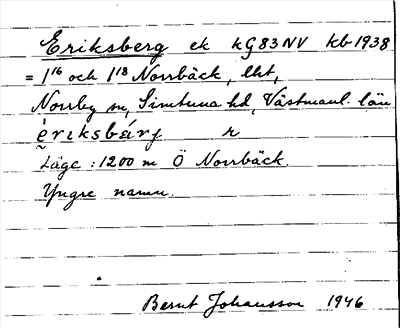 Eriksberg ek kG83NV kb 1938
= 1¹⁶ och 1¹⁸ Norrbäck, lht,
Norrby sn, Simtuna hd, Västmanl. län
èriksbárj r
Läge : 1200 m Ö Norrbäck.
Yngre namn.
Bernt Johansson 1946